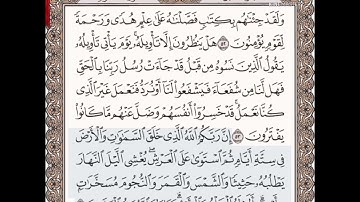 وَلَقَدْ جِئْنَٰهُم بِكِتَٰبٍ فَصَّلْنَٰهُ عَلَىٰ عِلْمٍ هُدًى وَرَحْمَةً
لِّقَوْمٍ يُؤْمِنُونَ ٥٢ هَلْ يَنظُرُونَ إِلَّا تَأْوِيلَهُۥ ۚ يَوْمَ يَأْتِى تَأْوِيلُهُۥ
يَقُولُ ٱلَّذِينَ نَسُوهُ مِن قَبْلُ قَدْ جَآءَتْ رُسُلُ رَبِّنَا بِٱلْحَقِّ
فَهَل لَّنَا مِن شُفَعَآءَ فَيَشْفَعُوا۟ لَنَآ أَوْ نُرَدُّ فَنَعْمَلَ غَيْرَ ٱلَّذِى
كُنَّا نَعْمَلُ ۚ قَدْ خَسِرُوٓا۟ أَنفُسَهُمْ وَضَلَّ عَنْهُم مَّا كَانُوا۟
يَفْتَرُونَ ٥٣ إِنَّ رَبَّكُمُ ٱللَّهُ ٱلَّذِى خَلَقَ ٱلسَّمَٰوَٰتِ وَٱلْأَرْضَ
فِى سِتَّةِ أَيَّامٍ ثُمَّ ٱسْتَوَىٰ عَلَى ٱلْعَرْشِ يُغْشِى ٱلَّيْلَ ٱلنَّهَارَ
يَطْلُبُهُۥ حَثِيثًا وَٱلشَّمْسَ وَٱلْقَمَرَ وَٱلنُّجُومَ مُسَخَّرَٰتٍۭ